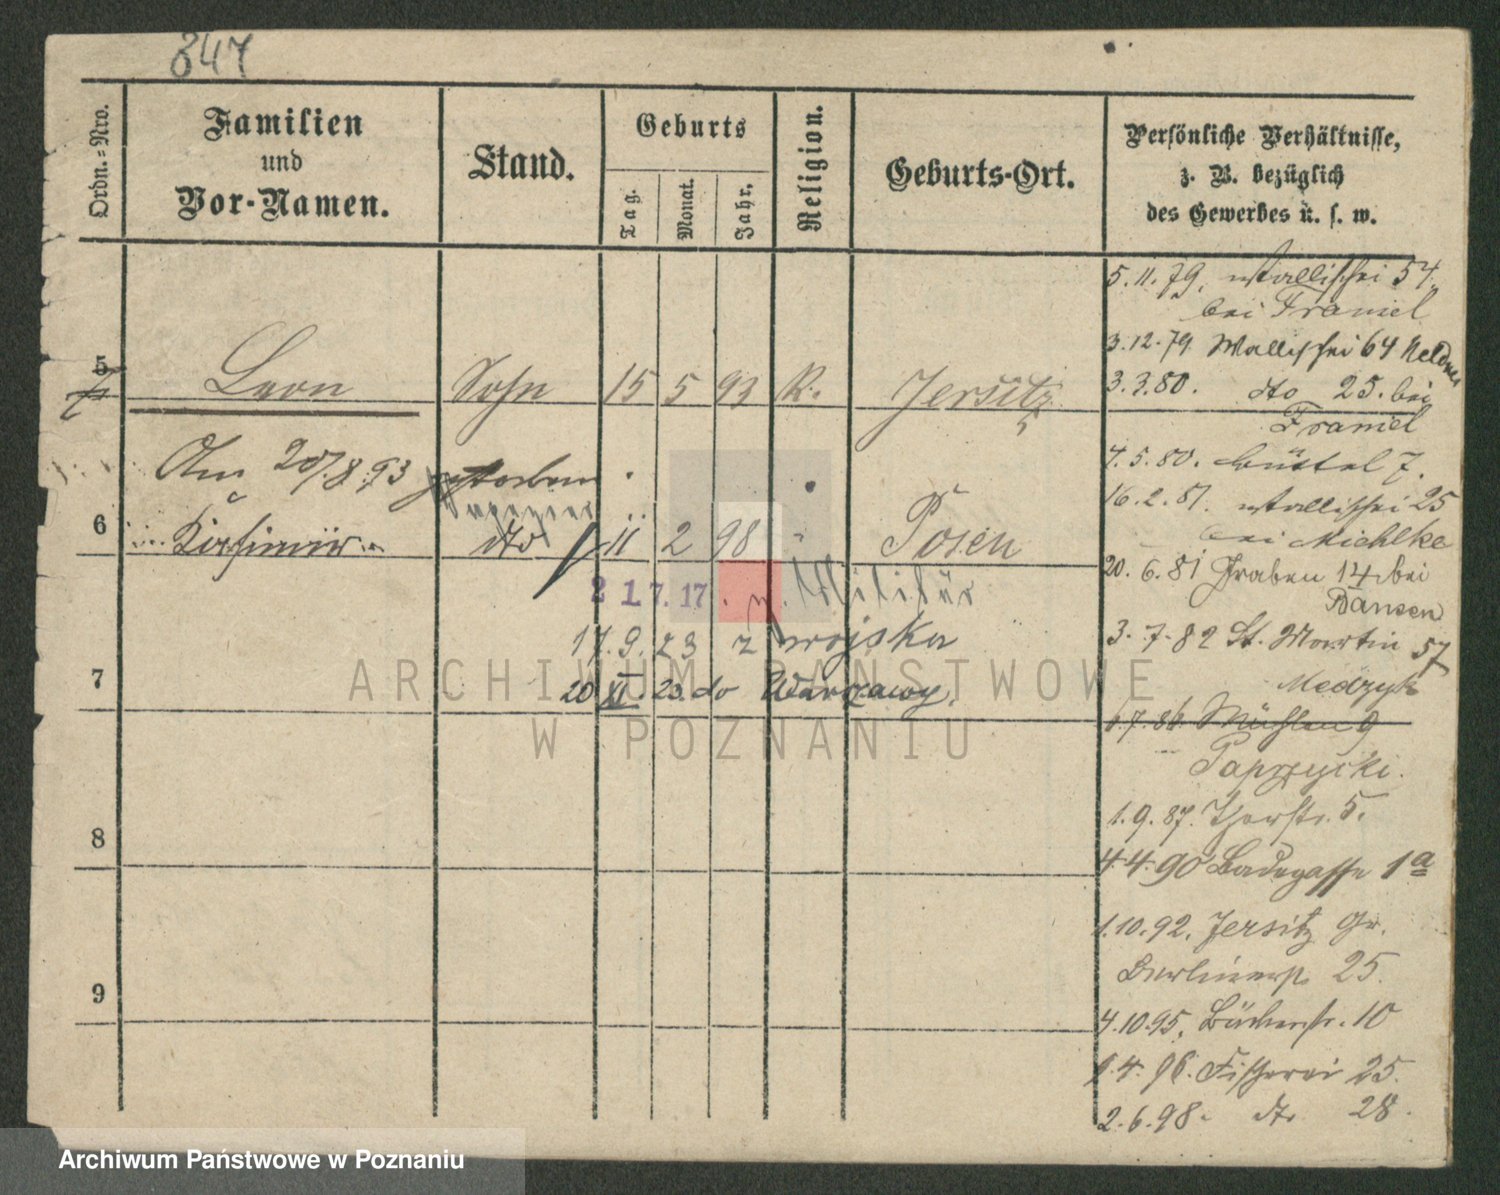 847
Ordn.-Nro.
Familien
und
Vor-Namen.
Stand.
Geburts
Tag. Monat. Jahr.
Religion.
Geburts-Ort.
Persönliche Verhältnisse,
z. B. bezüglich
des Gewerbes u. s. w.
5.11.79. Wallischei 54.
bei Framel
3.12.79 Wallischei 64
3.3.80. dto 25. bei
Framel
5 Leon Sohn 15 5 93 K. Jersitz
Am 20/8.93 gestorben
4.5.80. Büttel 7.
16.2.81. Wallischei 25
bei Michlke
6 Kasimir dto 11 2 98 " Posen
20.6.81 Graben 14 bei
Bansen
21.7.17. z. Militär
3.7.82 St. Martin 57
17.9.23 z wojska
7
20 XI. 23. do Warszawy.
6.7.86. Mühlen 9
Paprzycki.
8
1.9.87. Thorstr. 5.
4.4.90 Badegasse 1a
1.10.92. Jersitz Gr.
Berlinerstr. 25.
9
4.10.95. Bäckerstr. 10
1.4.96. Fischerei 25.
2.6.98. dto 28.
ARCHIWUM PAŃSTWOWE
W POZNANIU
Archiwum Państwowe w Poznaniu